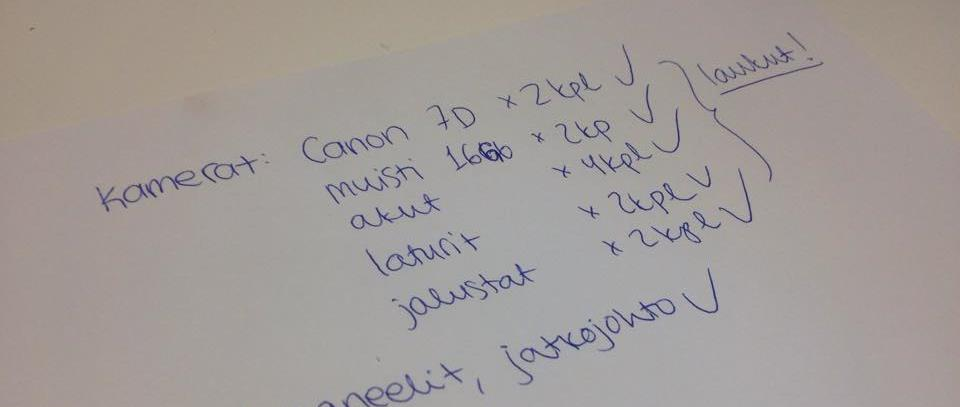 Kamerat: Canon 7D x 2kpl ✓
muisti 16Gb x 2kp ✓
akut x 4kpl ✓
laturit x 2kpl ✓
jalustat x 2kpl ✓
laukut!
jatkojohto ✓